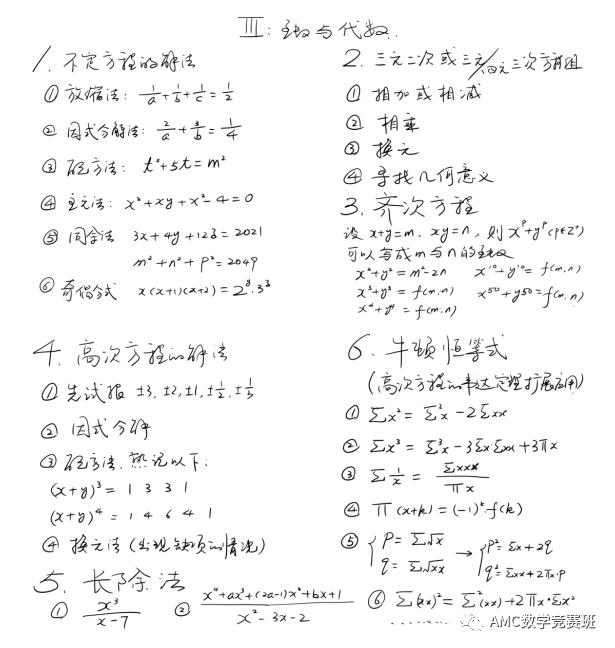 III: 函数与代数.
1. 不定方程的解法
① 放缩法: 1/a+1/b+1/c=1/2
② 因式分解法: 2/a+3/b=1/4
③ 配方法: t²+5t=m²
④ 主元法: x²+xy+x²-4=0
⑤ 同余法 3x+4y+12z=2021
m²+n²+p²=2049
⑥ 奇偶分式 x(x+1)(x+2)=2^y·3^z
2. 三元二次或三元/四元三次方程组
① 相加或相减
② 相乘
③ 换元
④ 寻找几何意义
3. 齐次方程
设 x+y=m, xy=n, 则 x^p+y^p (p∈Z⁺)
可以写成m与n的函数
x²+y²=m²-2n x¹⁰+y¹⁰=f(m,n)
x³+y³=f(m,n) x⁵⁰+y50=f(m,n)
x⁴+y⁴=f(m,n)
4. 高次方程的解法
① 先试根 ±3,±2,±1,±1/2,±1/3
② 因式分解
③ 配方法, 熟记以下:
(x+y)³= 1 3 3 1
(x+y)⁴= 1 4 6 4 1
④ 换元法(出现缺项的情况)
5. 长除法
① x³/(x-7) ② (x⁴+ax³+(2a-1)x²+bx+1)/(x²-3x-2)
6. 牛顿恒等式
(高次方程的韦达定理扩展应用)
① Σx²=Σ²x-2Σxx
② Σx³=Σ³x-3Σx·Σxx+3πx
③ Σ1/x=Σxxx/πx
④ π(x+k)=(-1)^k·f(k)
⑤ { p=Σ√x → { p²=Σx+2q
q=Σ√xx q²=Σxx+2πx·p
⑥ Σ(xx)²=Σ²(xx)+2πx·Σx²
AMC数学竞赛班